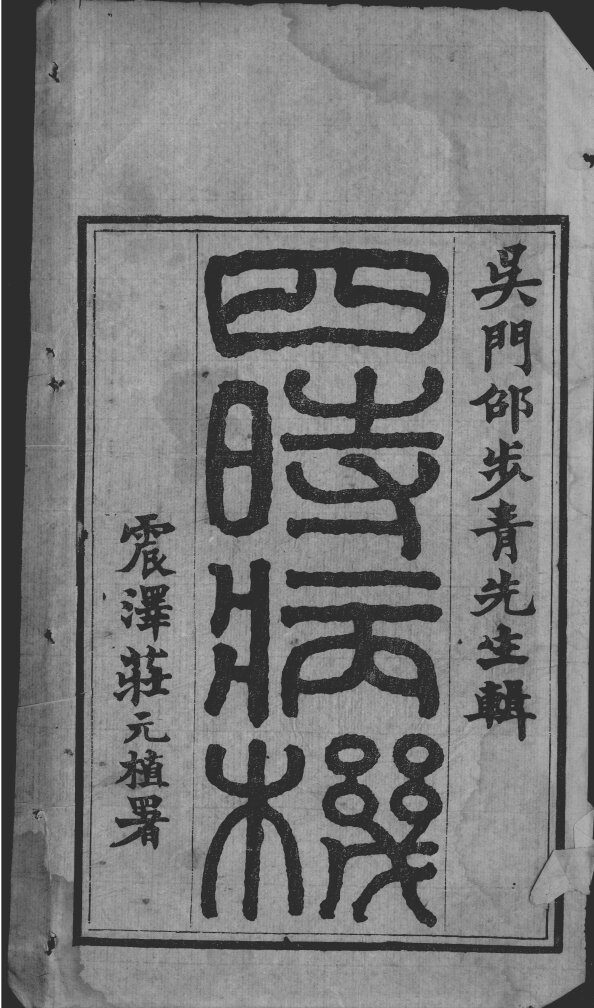 吳門邵步青先生輯
四時病機
震澤莊元植署